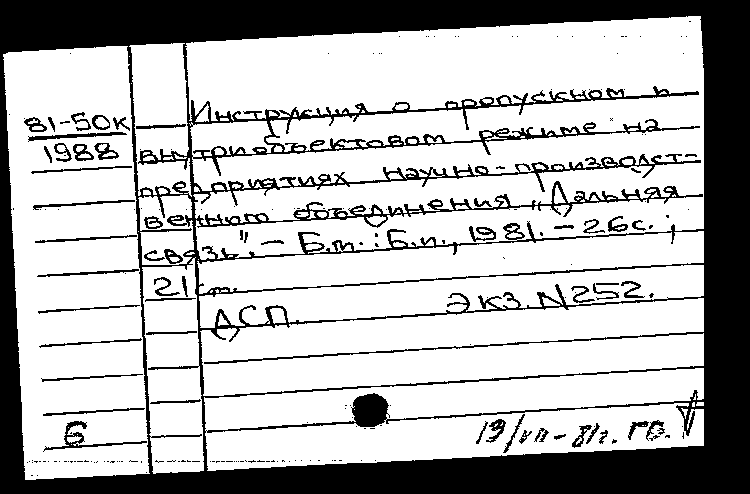 81-50к
1988
Инструкция о пропускном и
внутриобъектовом режиме на
предприятиях научно-производст-
венного объединения „Дальняя
связь". - Б.м. : Б.и., 1981. - 26с. ;
21 см.
ДСП. Экз. N252.
6
13/VII-81г. ГО.